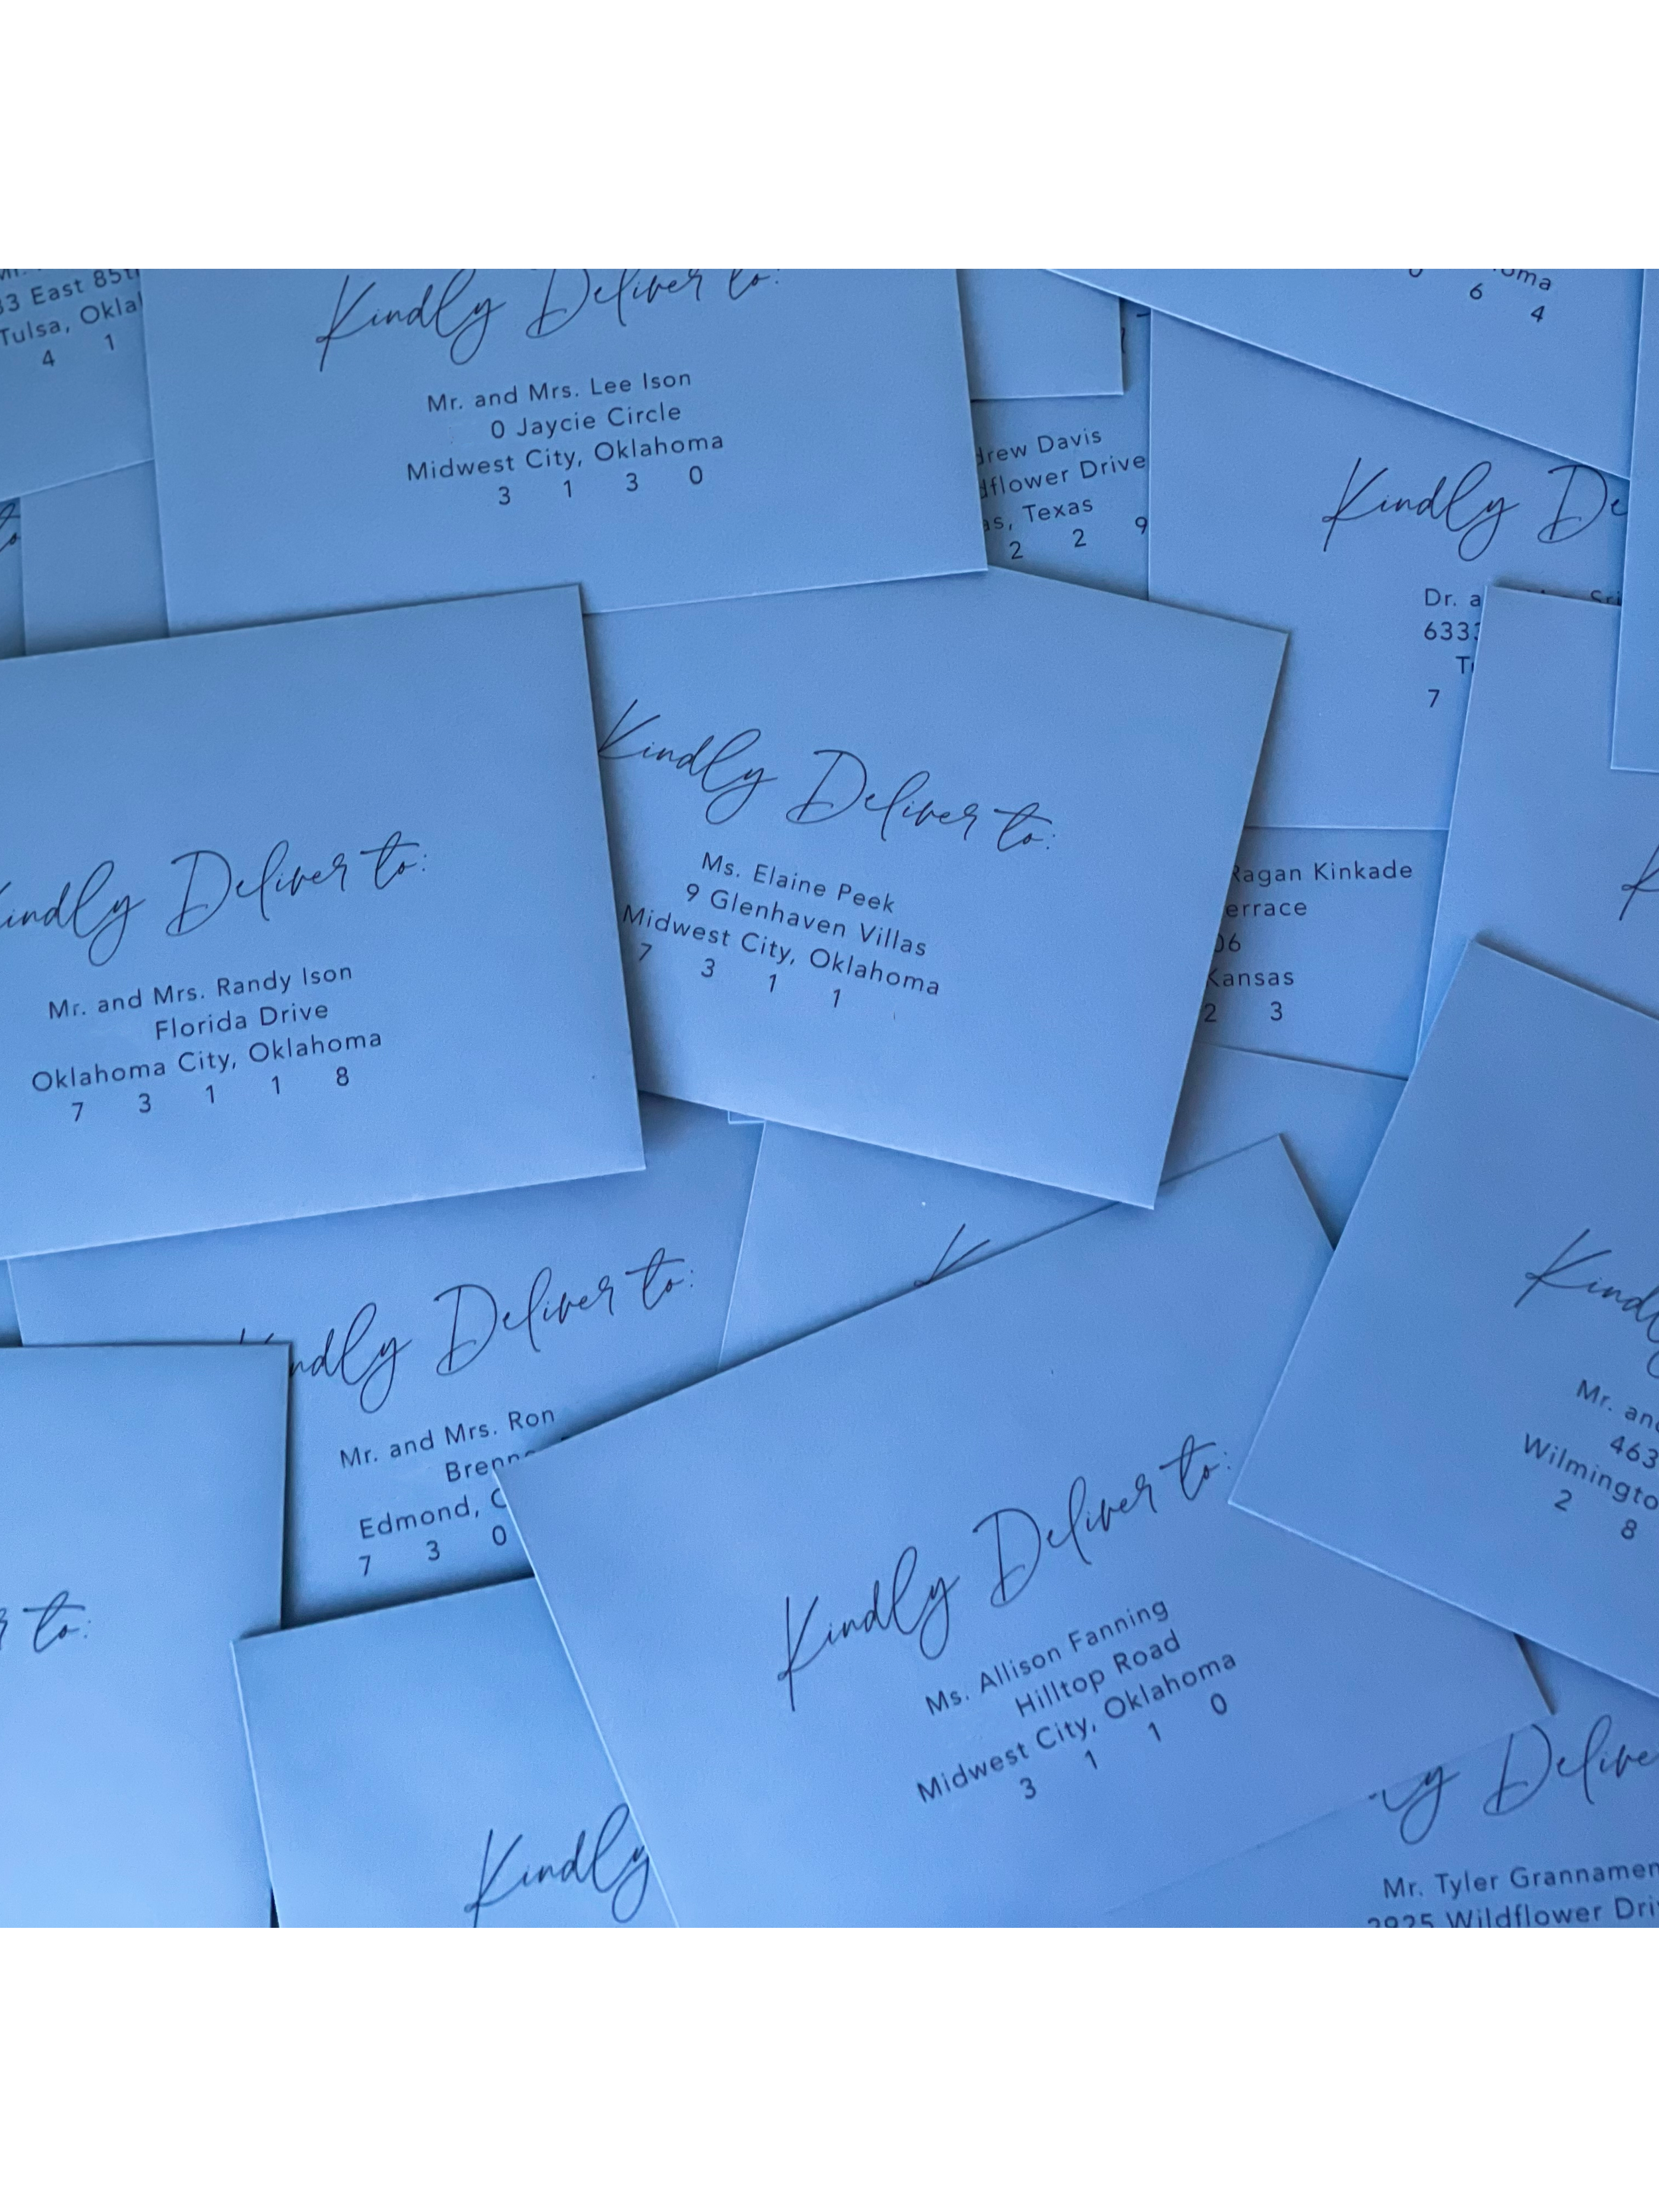 33 East 85th
Tulsa,
4 1
Kindly Deliver to:
Mr. and Mrs. Lee Ison
0 Jaycie Circle
Midwest City, Oklahoma
3 1 3 0
Davis
Drive
Texas
2 2 9
6 4
Kindly
Dr.
7
Kindly Deliver to:
Ms. Elaine Peek
9 Glenhaven Villas
Midwest City, Oklahoma
7 3 1 1
Ragan Kinkade
Kansas
2 3
Kindly Deliver to:
Mr. and Mrs. Randy Ison
Florida Drive
Oklahoma City, Oklahoma
7 3 1 1 8
Deliver to:
Mr. and Mrs. Ron
Edmond,
7 3 0
to:
Kindly
Kindly Deliver to:
Ms. Allison Fanning
Hilltop Road
Midwest City, Oklahoma
3 1 1 0
Mr.
463
2 8
Mr. Tyler
2925 Wildflower